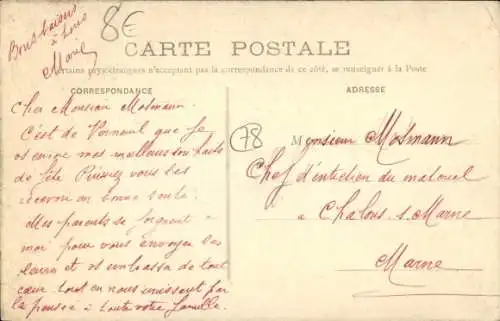 Bons baisers
à tous
Marie
8€
CARTE POSTALE
Certains pays étrangers n'acceptant pas la correspondance de ce côté, se renseigner à la Poste
CORRESPONDANCE
ADRESSE
Cher Monsieur Mosmann
C'est de Verneuil que Je
envoie mes meilleurs souhaits
de fête Puissiez vous les
recevoir en bonne santé
Mes parents se joignent à
moi pour vous envoyer les
leurs et embrasse de tout
cœur tous en nous unissant par
la pensée à toute votre famille.
78
Monsieur Mosmann
Chef d'entretien du materiel
à Chalons s. Marne
Marne